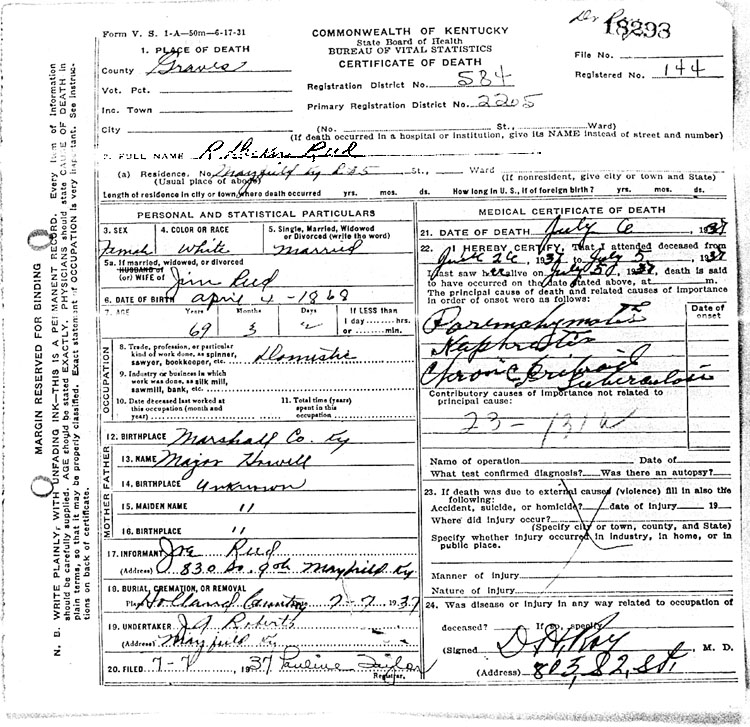 Dr Ray
18293
Form V. S. 1-A—50m—6-17-31
COMMONWEALTH OF KENTUCKY
State Board of Health
BUREAU OF VITAL STATISTICS
CERTIFICATE OF DEATH
File No.
Registered No. 144
1. PLACE OF DEATH
County Graves
Vot. Pct.
Inc. Town
City
Registration District No. 584
Primary Registration District No. 2205
(No. St., Ward)
(If death occurred in a hospital or institution, give its NAME instead of street and number)
2. FULL NAME R Reed
(a) Residence. No. Mayfield Ky R 5 St., Ward
(Usual place of abode)
(If nonresident, give city or town and State)
Length of residence in city or town where death occurred yrs. mos. ds. How long in U. S., if of foreign birth? yrs. mos. ds.
PERSONAL AND STATISTICAL PARTICULARS
3. SEX
Female
4. COLOR OR RACE
White
5. Single, Married, Widowed
or Divorced (write the word)
Married
5a. If married, widowed, or divorced
HUSBAND of
(or) WIFE of Jim Reed
6. DATE OF BIRTH April 4-1868
7. AGE Years Months Days If LESS than
1 day......hrs.
or......min.
69 3 2
OCCUPATION
8. Trade, profession, or particular
kind of work done, as spinner,
sawyer, bookkeeper, etc. Domestic
9. Industry or business in which
work was done, as silk mill,
sawmill, bank, etc.
10. Date deceased last worked at
this occupation (month and
year)
11. Total time (years)
spent in this
occupation
12. BIRTHPLACE Marshall Co. Ky
FATHER
13. NAME Major Howell
14. BIRTHPLACE Unknown
MOTHER
15. MAIDEN NAME "
16. BIRTHPLACE "
17. INFORMANT Joe Reed
(Address) 830 So. 9th Mayfield Ky
18. BURIAL, CREMATION, OR REMOVAL
Place Holland Cemetery 7-7 1937
19. UNDERTAKER J A Roberts
(Address) Mayfield Ky
20. FILED 7-7 1937 Pauline Taylor
Registrar.
MEDICAL CERTIFICATE OF DEATH
21. DATE OF DEATH July 6, 1937
22. I HEREBY CERTIFY, That I attended deceased from
26, 1937 to July 5, 1937
I last saw her alive on July 5, 1937, death is said
to have occurred on the date stated above, at m.
The principal cause of death and related causes of importance
in order of onset were as follows:
Date of
onset
Chronic
Tuberculosis
Contributory causes of importance not related to
principal cause:
23-131a
Name of operation Date of
What test confirmed diagnosis? Was there an autopsy?
23. If death was due to external causes (violence) fill in also the
following:
Accident, suicide, or homicide? date of injury 19
Where did injury occur?
(Specify city or town, county, and State)
Specify whether injury occurred in industry, in home, or in
public place.
Manner of injury
Nature of injury
24. Was disease or injury in any way related to occupation of
deceased? If so, specify
(Signed) D H Ray, M. D.
(Address) 803, S 2, St.
MARGIN RESERVED FOR BINDING
N. B. WRITE PLAINLY, WITH UNFADING INK—THIS IS A PERMANENT RECORD. Every item of information
should be carefully supplied. AGE should be stated EXACTLY. PHYSICIANS should state CAUSE OF DEATH in
plain terms, so that it may be properly classified. Exact statement of OCCUPATION is very important. See instruc-
tions on back of certificate.